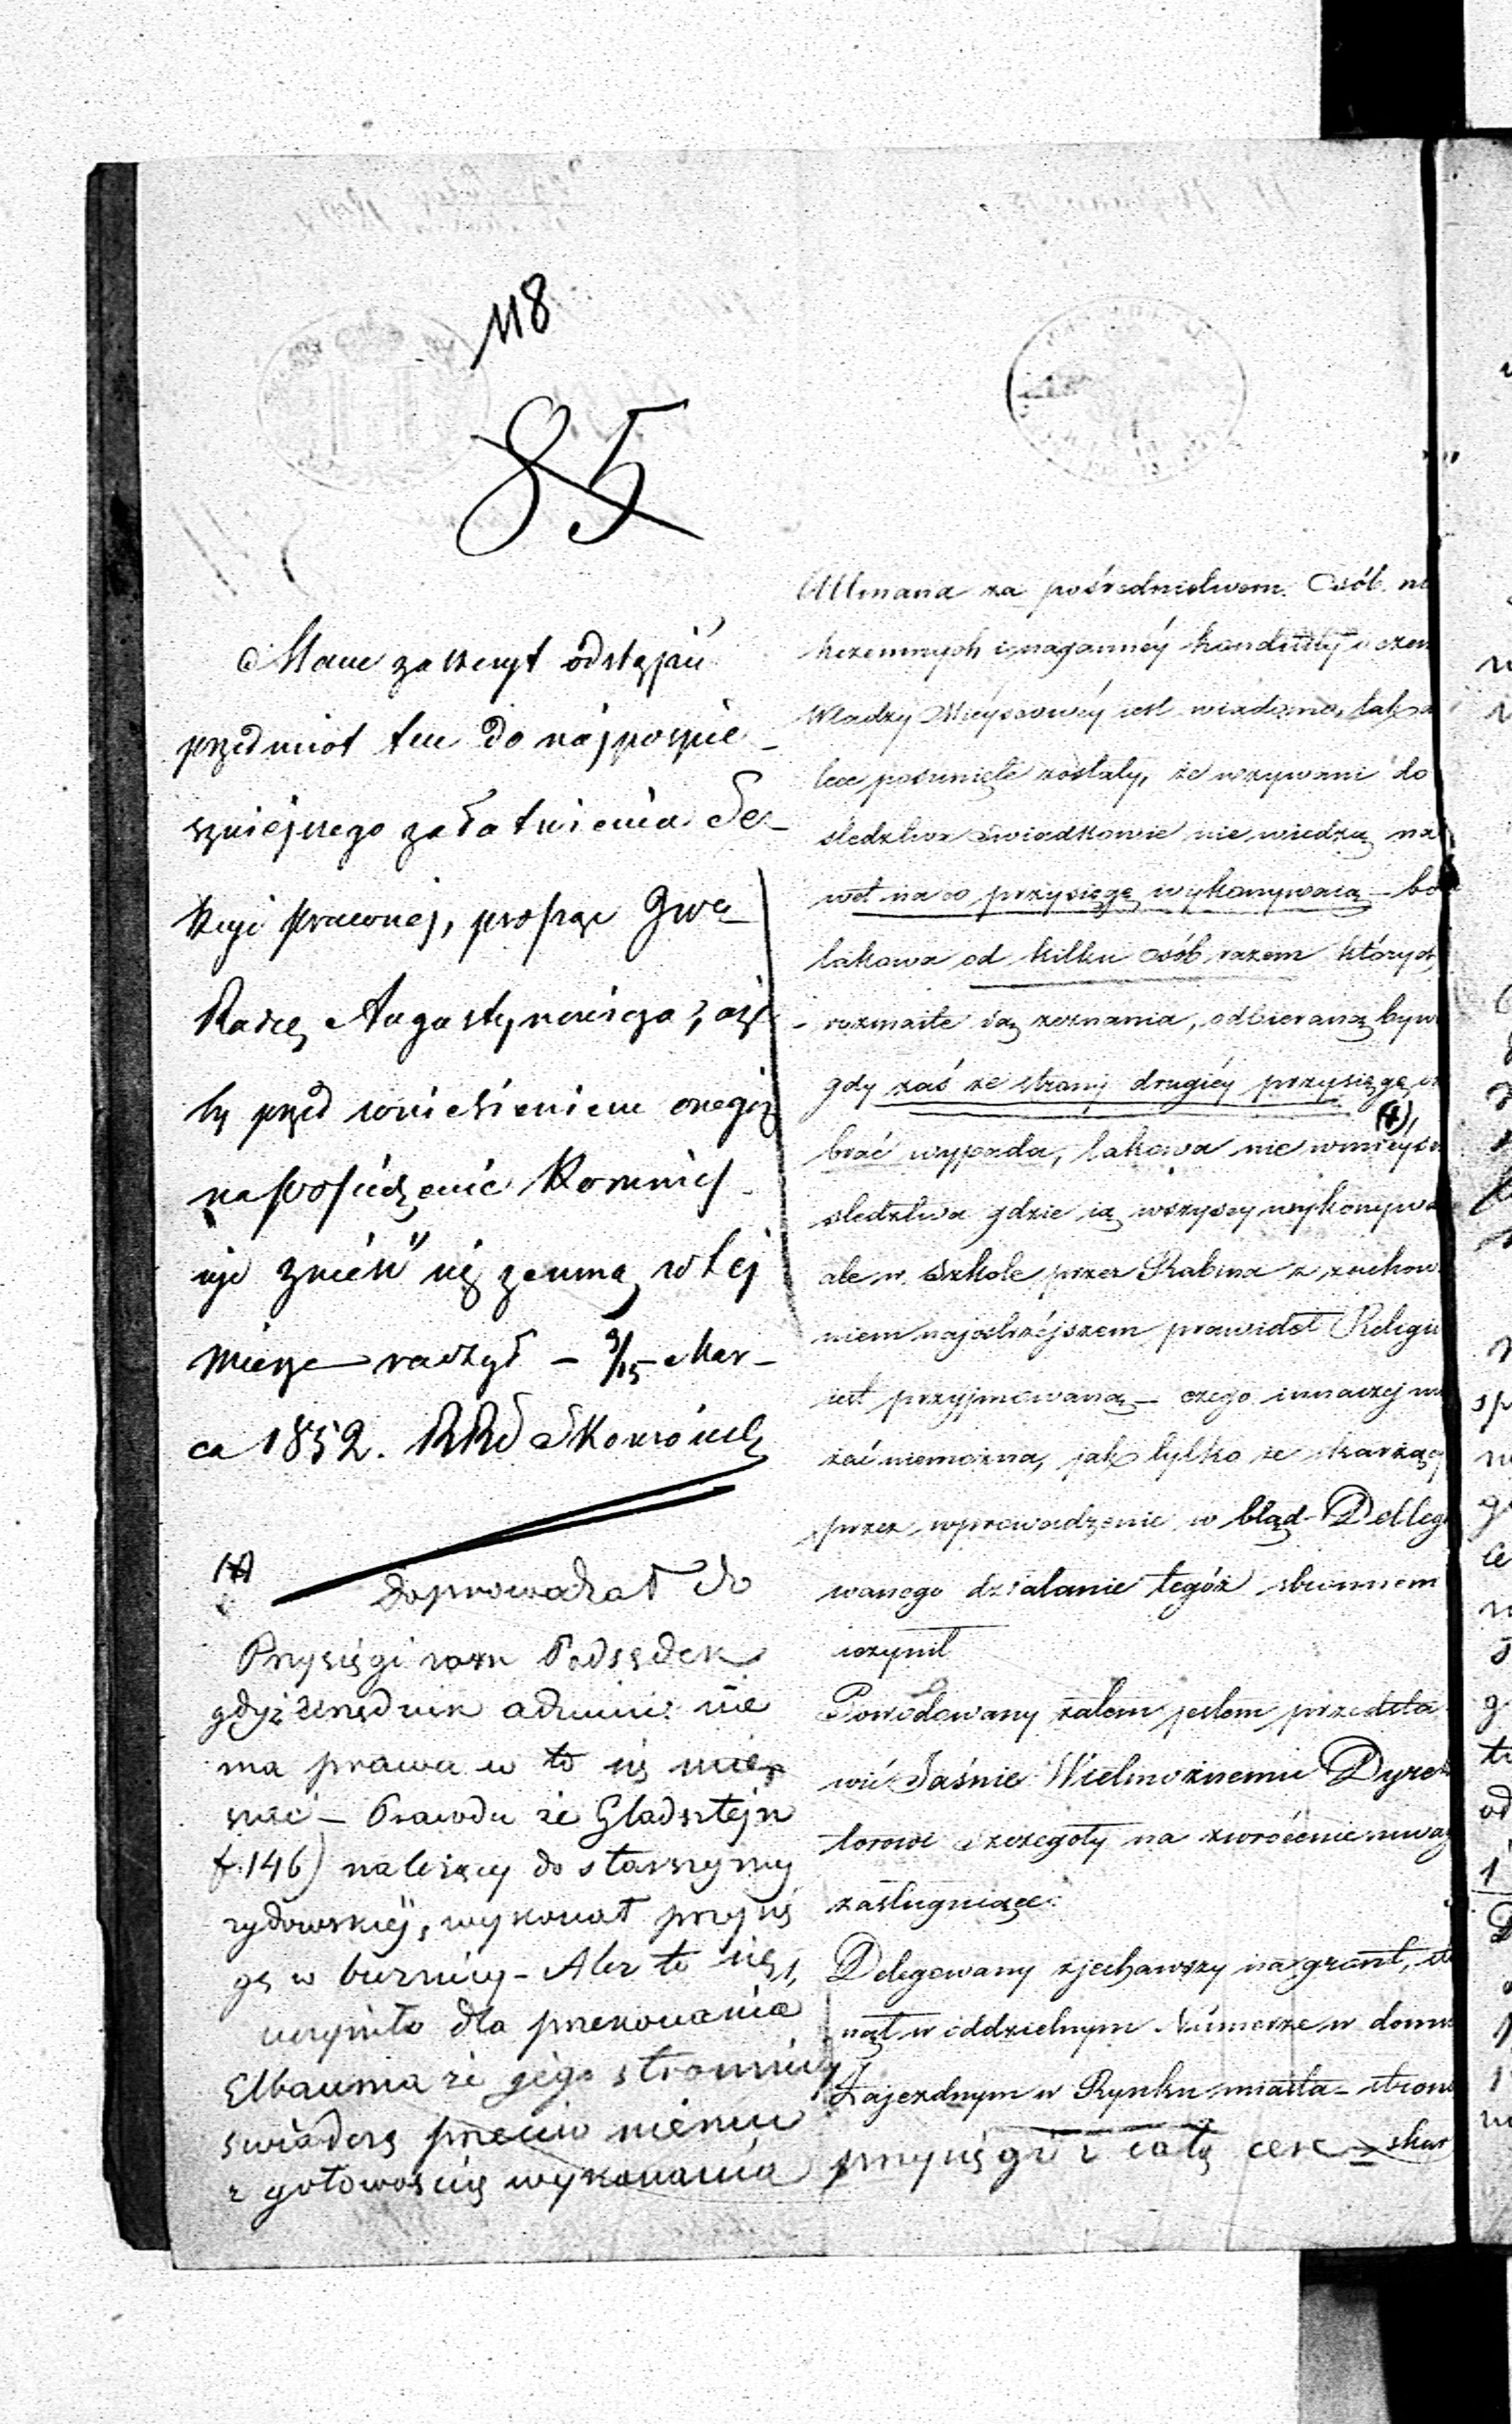 118
85
Mam zaszczyt odstąpić
przedmiot ten do najpospie-
szniejszego załatwienia Se-
kcyi prawnej, prosząc JWo
Radcę Augustynowicza, aże-
by przed wniesieniem onegoż
na posiedzenie Kommis-
syi znieść się zemną w tej
mierze raczył – 3/15 Mar-
ca 1852. RRS
(+)
doprowadzał do
Przysięgi razem Podsędek
gdyż Urzędnik admini: nie
ma prawa w to się mie-
szać – Prawda że Gladsztejn
f. 146) należący do starszyzny
żydowskiéj, wykonał przysię
gę w bużnicy – Ale to się
uczyniło dla przekonania
Elbauma że jego stronnicy
świadczą przeciw niemu
z gotowością wykonania
przysięgi i całą cere
Ullmana za pośrednictwem Osób ni
kczemnych i nagannéy konduity o czem
Władzy Miéyscowéy iest wiadomo, tak da
lece posunięte zostały, że wzywani do
śledztwa świadkowie nie wiedzą na
wet na co przysięgę wykonywaią – bo
takowa od kilku osób razem których
rozmaite są zeznania, odbieraną bywa
gdy zaś ze strony drugiéy przysięgę o
(+)
brać wypada, takowa nie w miéysc
śledztwa gdzie ią wszyscy wykonywa
ale w Szkole przez Rabina z zachowa
niem najostrzéjszem prawideł Religii
iest przyjmowaną – czego inaczej nu
żać niemożna, jak tylko że skarżący
przez wprowadzenie w błąd Delleg
wanego działanie tegóż stronnem
uczynił
Powodowany zatem jestem przedsta
wić Jaśnie Wielmożnemu Dyrek
torowi Szczegóły na zwrócenie uwag
zasługuiące:
Delegowany zjechawszy na grunt, sta
nął w oddzielnym Numerze w domu
Zajezdnym w Rynku miasta – stron
skar